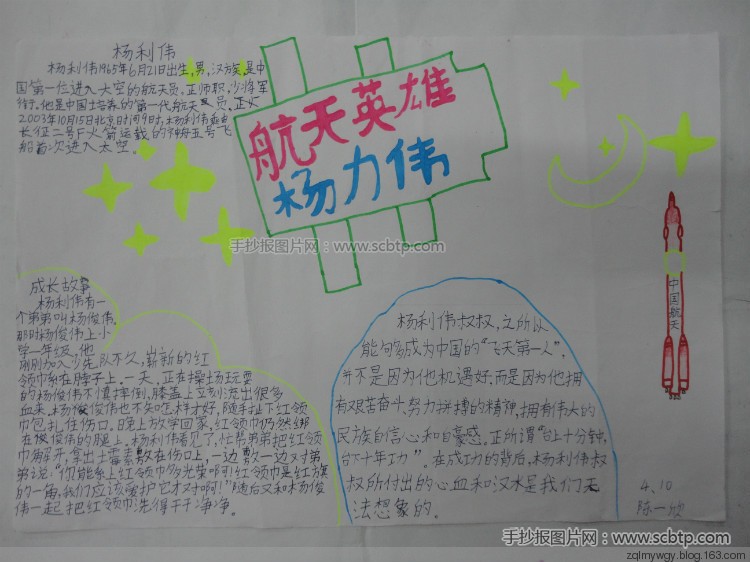 杨利伟
杨利伟1965年6月21日出生,男,汉族,是中
国第一位进入太空的航天员,正师职,少将军
衔,他是中国培养的第一代航天员,
2003年10月15日北京时间9时,杨利伟乘由
长征二号F火箭运载的神舟五号飞
船首次进入太空。
航天英雄
杨力伟
手抄报图片网:www.scbtp.com
中国航天
成长故事
杨利伟有一
个弟弟叫杨俊伟,
那时杨俊伟上小
学一年级,他
刚刚加入少先队不久,崭新的红
领巾系在脖子上。一天,正在操场玩耍
的杨俊伟不慎摔倒,膝盖上立刻流出很多
血来。杨俊伟也不知怎样才好,随手扯下红领
巾包扎住伤口。晚上放学回家,红领巾仍然绑
在俊伟的腿上。杨利伟看见了,忙帮弟弟把红领
巾解开,拿出土霉素敷在伤口上,一边敷一边对弟
弟说:“你能系上红领巾多光荣啊!红领巾是红旗
的一角,我们应该爱护它才对啊!”随后又和杨俊
伟一起把红领巾洗得干干净净。
杨利伟叔叔,之所以
能够成为中国的“飞天第一人”,
并不是因为他机遇好,而是因为他拥
有艰苦奋斗、努力拼搏的精神,拥有伟大的
民族自信心和自豪感。正所谓“台上十分钟,
台下十年功”。在成功的背后,杨利伟叔
叔所付出的心血和汗水是我们无
法想象的。
4.10
陈一欣
手抄报图片网:www.scbtp.com
zqlmywgy.blog.163.com